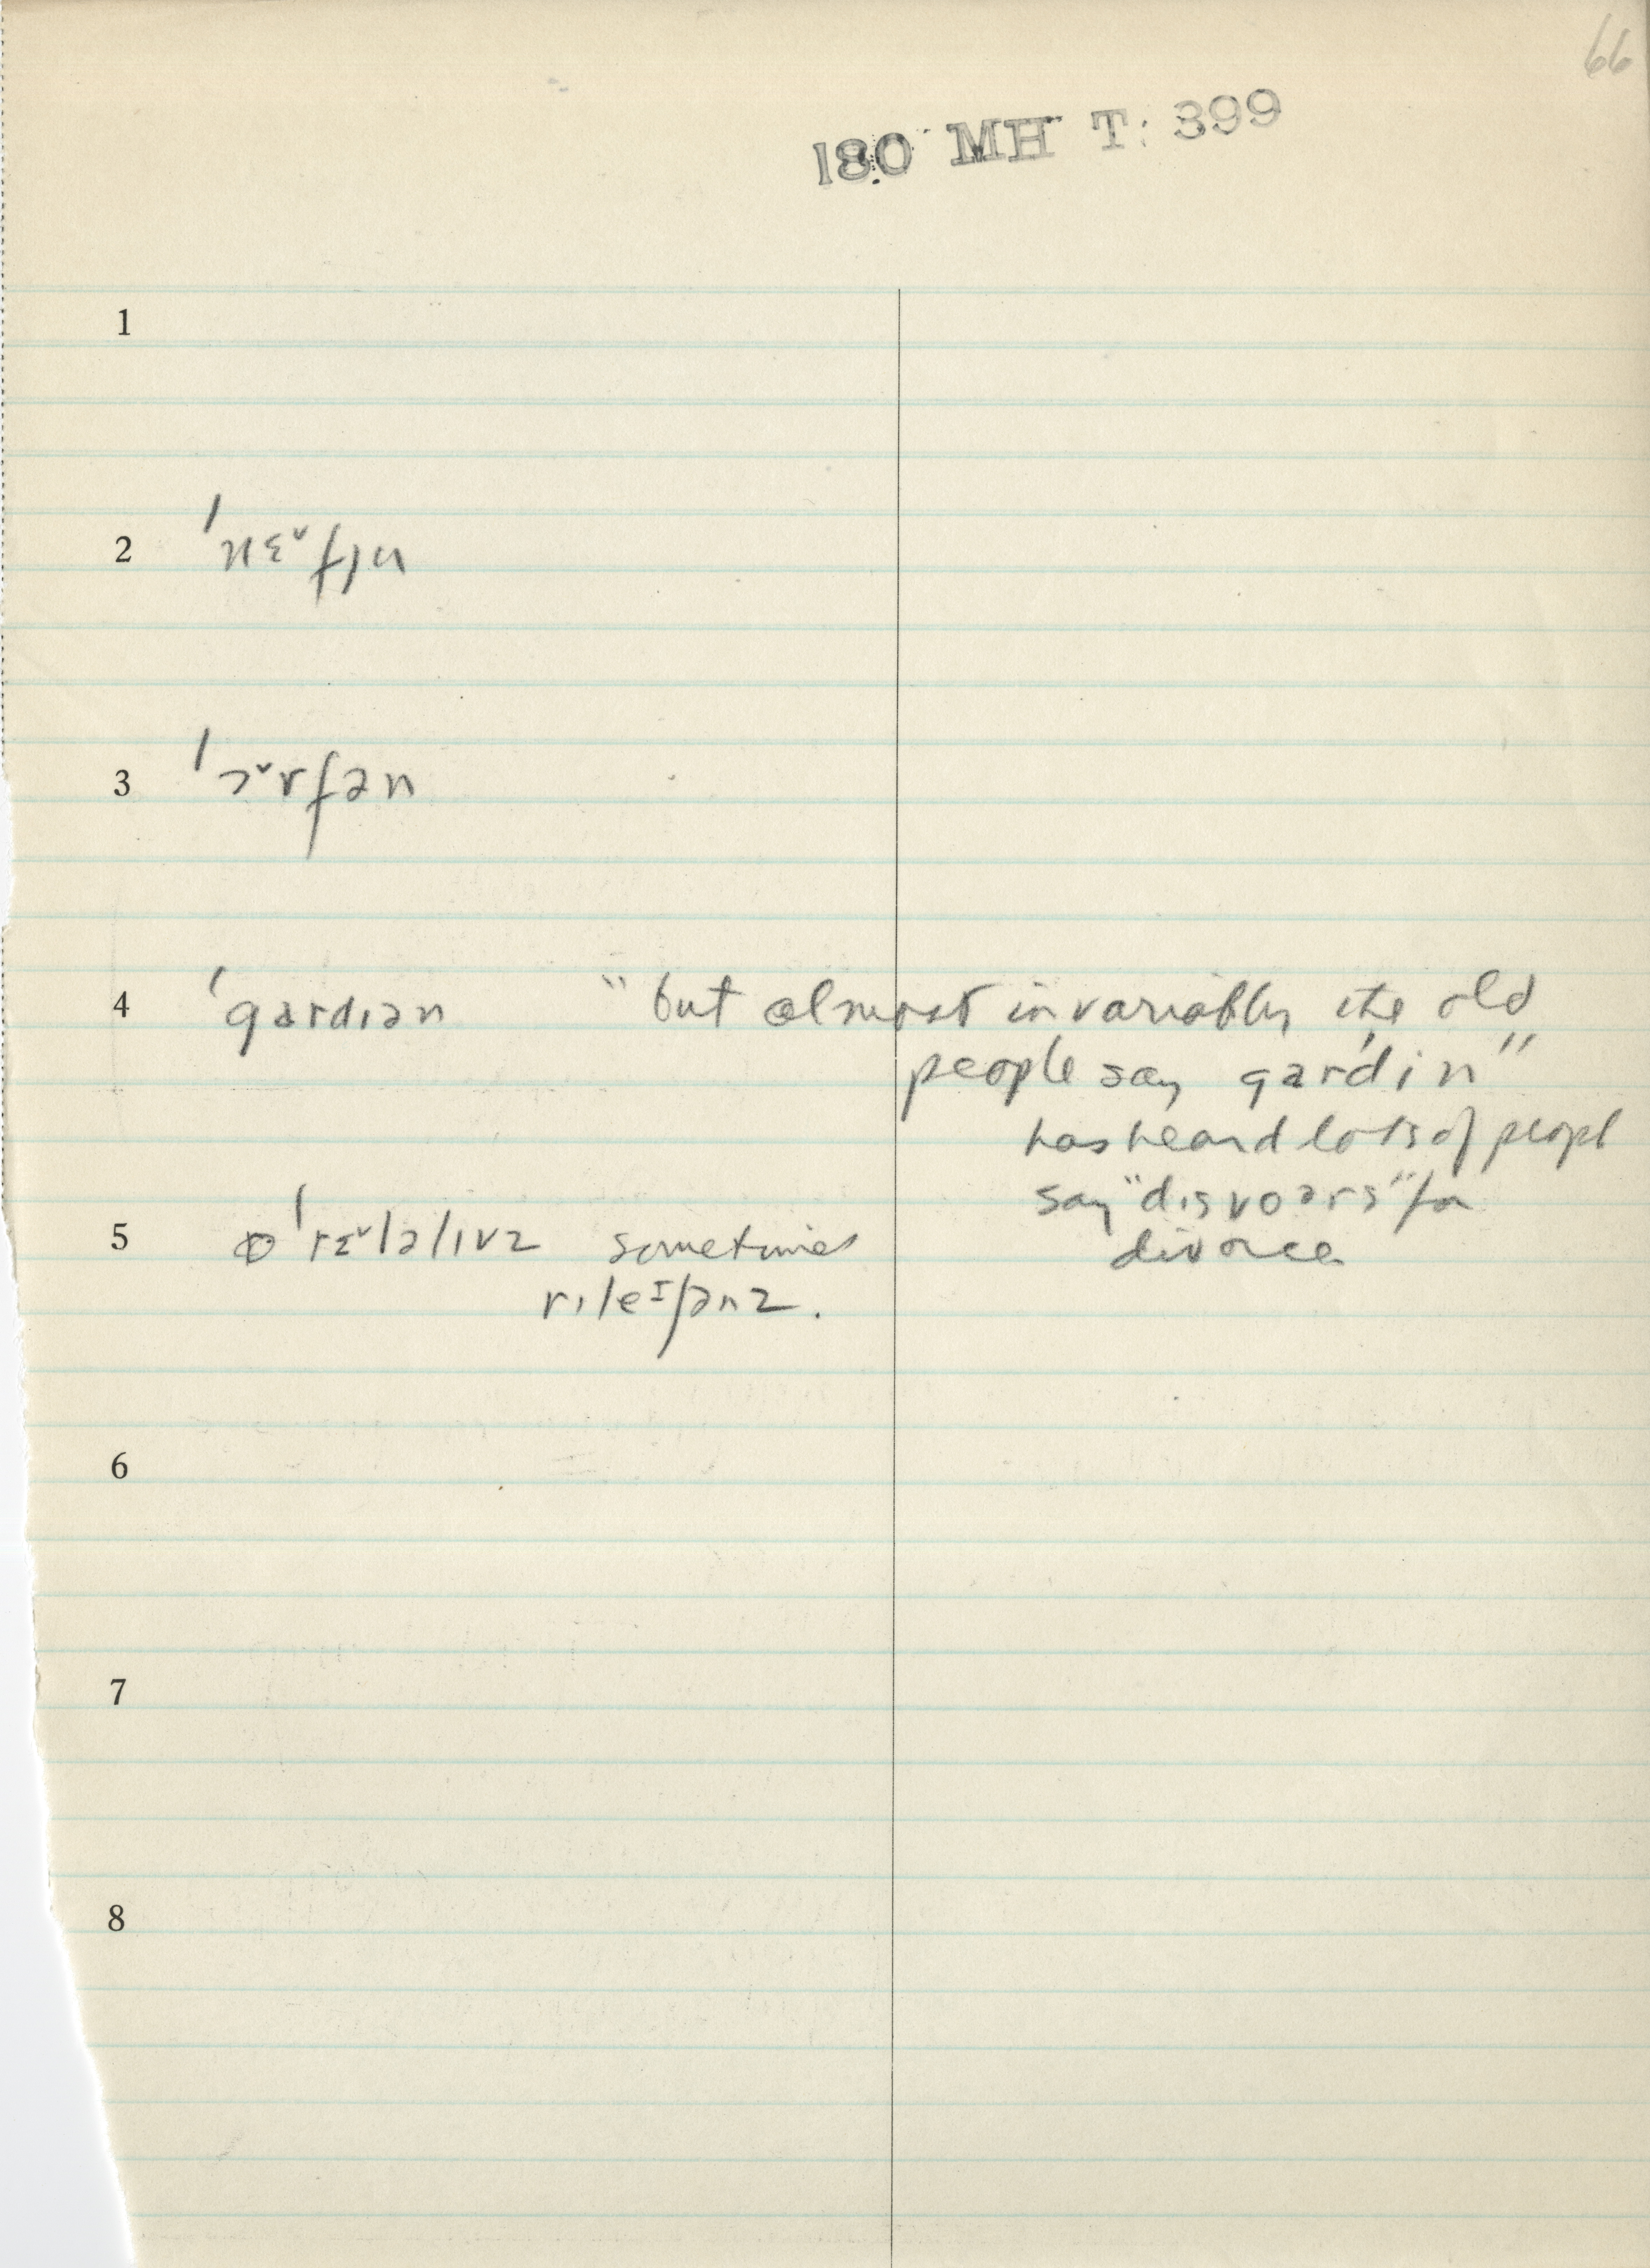 66
180 MH T: 399
1
2 ˈnɛ˅fjn
3 ˈɔ˅rfən
4 ˈgardɪən "but almost invariably the old
people say gardin"
has heard lots of peopl
say "dɪsvoərs" for
5 ˈrɛ˅lətɪvz sometimes divorce
rɪleɪʃənz.
6
7
8